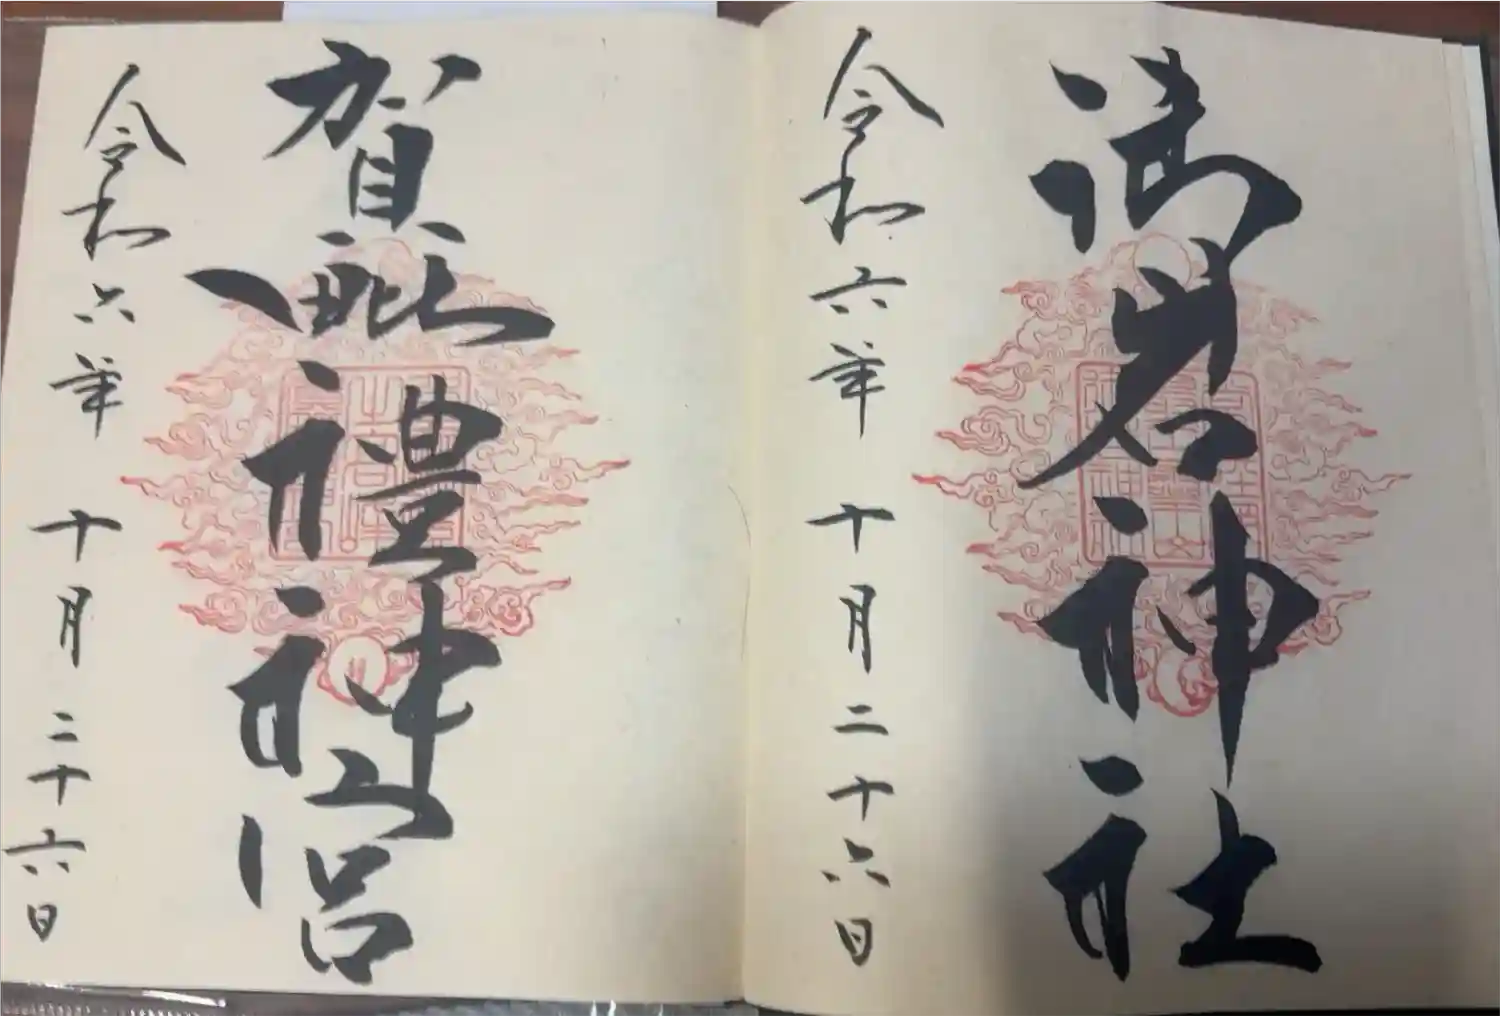 御岩神社
令和六年 十月二十六日
賀毗禮神宮
令和六年 十月二十六日